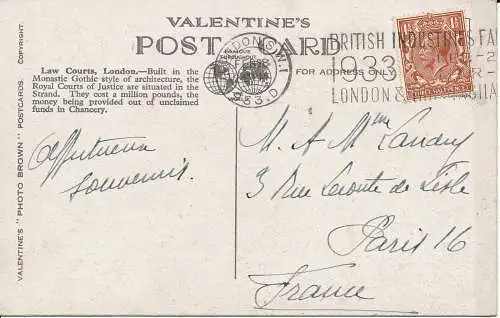 VALENTINE'S
POST CARD
FAMOUS THROUGHOUT THE WORLD
FOR ADDRESS ONLY
LONDON S.W.1
1933.D
BRITISH INDUSTRIES FA
1933
LONDON &
Law Courts, London.—Built in the
Monastic Gothic style of architecture, the
Royal Courts of Justice are situated in the
Strand. They cost a million pounds, the
money being provided out of unclaimed
funds in Chancery.
Affectueux
souvenirs.
M. & Mme Landry
3 Rue Leconte de Lisle
Paris 16
France
VALENTINE'S "PHOTO BROWN" POSTCARDS
COPYRIGHT.